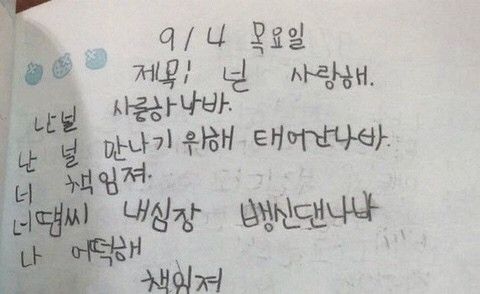 9/4 목요일
제목: 넌 사랑해.
난널 사릉하나바.
난 널 만나기위해 태어난나바.
너 책임져.
너땜씨 내심장 뱅신댄나바
나 어떡해
책임져